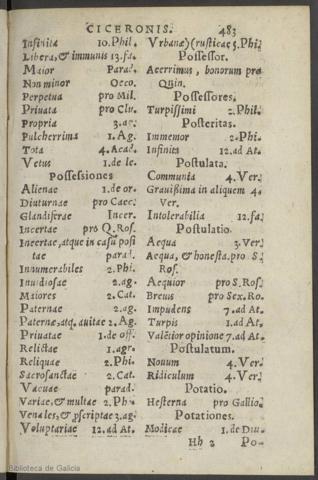 CICERONIS. 483
Infinita 10. Phil.
Libera, & immunis 13. fa.
Maior Parad.
Non minor Oeco.
Perpetua pro Mil.
Priuata pro Clu.
Propria 3. ac.
Pulcherrima 1. Ag.
Tota 4. Acad.
Vetus 1. de le.
Possessiones
Alienae 1. de or.
Diuturnae pro Caec.
Glandiferae Incer.
Incertae pro Q. Ros.
Incertae, atque in casu posi
tae parad.
Innumerabiles 2. Phi.
Inuidiosae 2. ag.
Maiores 2. Cat.
Paternae 2. ag.
Paternae, atq. auitae 2. Ag.
Priuatae 1. de off.
Relictae 1. agr.
Reliquae 2. Phi.
Sacrosanctae 2. Cat.
Vacuae parad.
Variae, & multae 2. Ph.
Venales, & pscriptae 3. ag.
Voluptariae 12. ad At.
Vrbanae) (rusticae 5. Phi.
Possessor.
Acerrimus, bonorum pro
Quin.
Possessores.
Turpissimi 2. Phil.
Posteritas.
Immemor 2. Phi.
Infinita 12. ad At.
Postulata.
Communia 4. Ver.
Grauißima in aliquem 4.
Ver.
Intolerabilia 12. fa.
Postulatio.
Aequa 3. Ver.
Aequa, & honesta. pro S.
Ros.
Aequior pro S. Ros.
Breuis pro Sex. Ro.
Impudens 7. ad At.
Turpis 1. ad At.
Valẽtior opinione 7. ad At.
Postulatum.
Nouum 4. Ver.
Ridiculum 4. Ver.
Potatio.
Hesterna pro Gallio.
Potationes.
Modicae 1. de Diu.
Hh 2 Po-
Biblioteca de Galicia